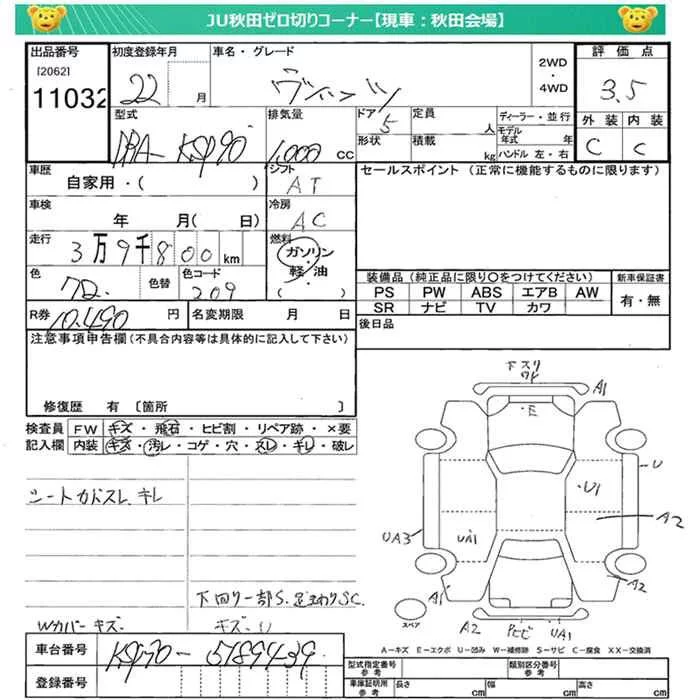 JU秋田ゼロ切りコーナー【現車：秋田会場】
出品番号 初度登録年月 車名・グレード 2WD ・ 4WD 評価点
[2062]
11032 22 月 ヴィッツ 3.5
型式 排気量 ドア 定員 ディーラー・並行 外装 内装
DBA-KSP90 1,000 cc 5 人 モデル年式 年 C C
形状 積載 kg ハンドル 左・右
車歴 シフト セールスポイント（正常に機能するものに限ります）
自家用・( ) AT
車検 冷房
年 月( 日) AC
走行 燃料
3万9千800km ガソリン
・
軽油
( )
色 色替 色コード 装備品（純正品に限り○をつけてください） 新車保証書
209 PS PW ABS エアB AW 有・無
SR ナビ TV カワ
R券 10,490円 名変期限 月 日 後日品
注意事項申告欄（不具合内容等は具体的に記入して下さい）
修復歴 有 〔箇所 〕
検査員 FW キズ・飛石・ヒビ割・リペア跡・×要
記入欄 内装 キズ・汚レ・コゲ・穴・スレ・キレ・破レ
シートカドスレ、キレ
下回り一部S. 足まわりSC.
Wカバーキズ キズ・U
下スリ
A1
E
U
U1
A2
UA3
UA1
A1
A2
スペア
A2
UA1
A－キズ E－エクボ U－凹み W－補修跡 S－サビ C－腐食 XX－交換済
車台番号 KSP90-5189439
登録番号
型式指定番号 参考 類別区分番号 参考
車庫証明用 参考 長さ cm 幅 cm 高さ cm